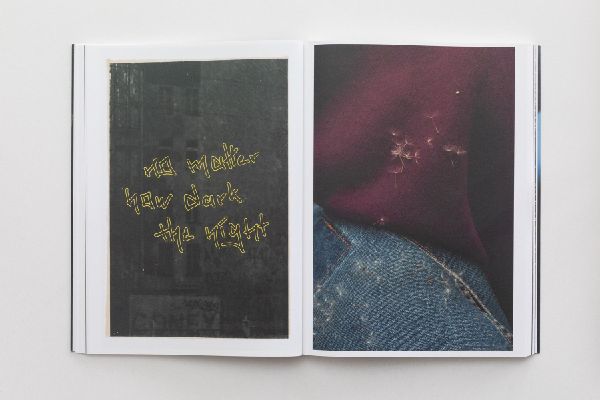 no matter
how dark
the night